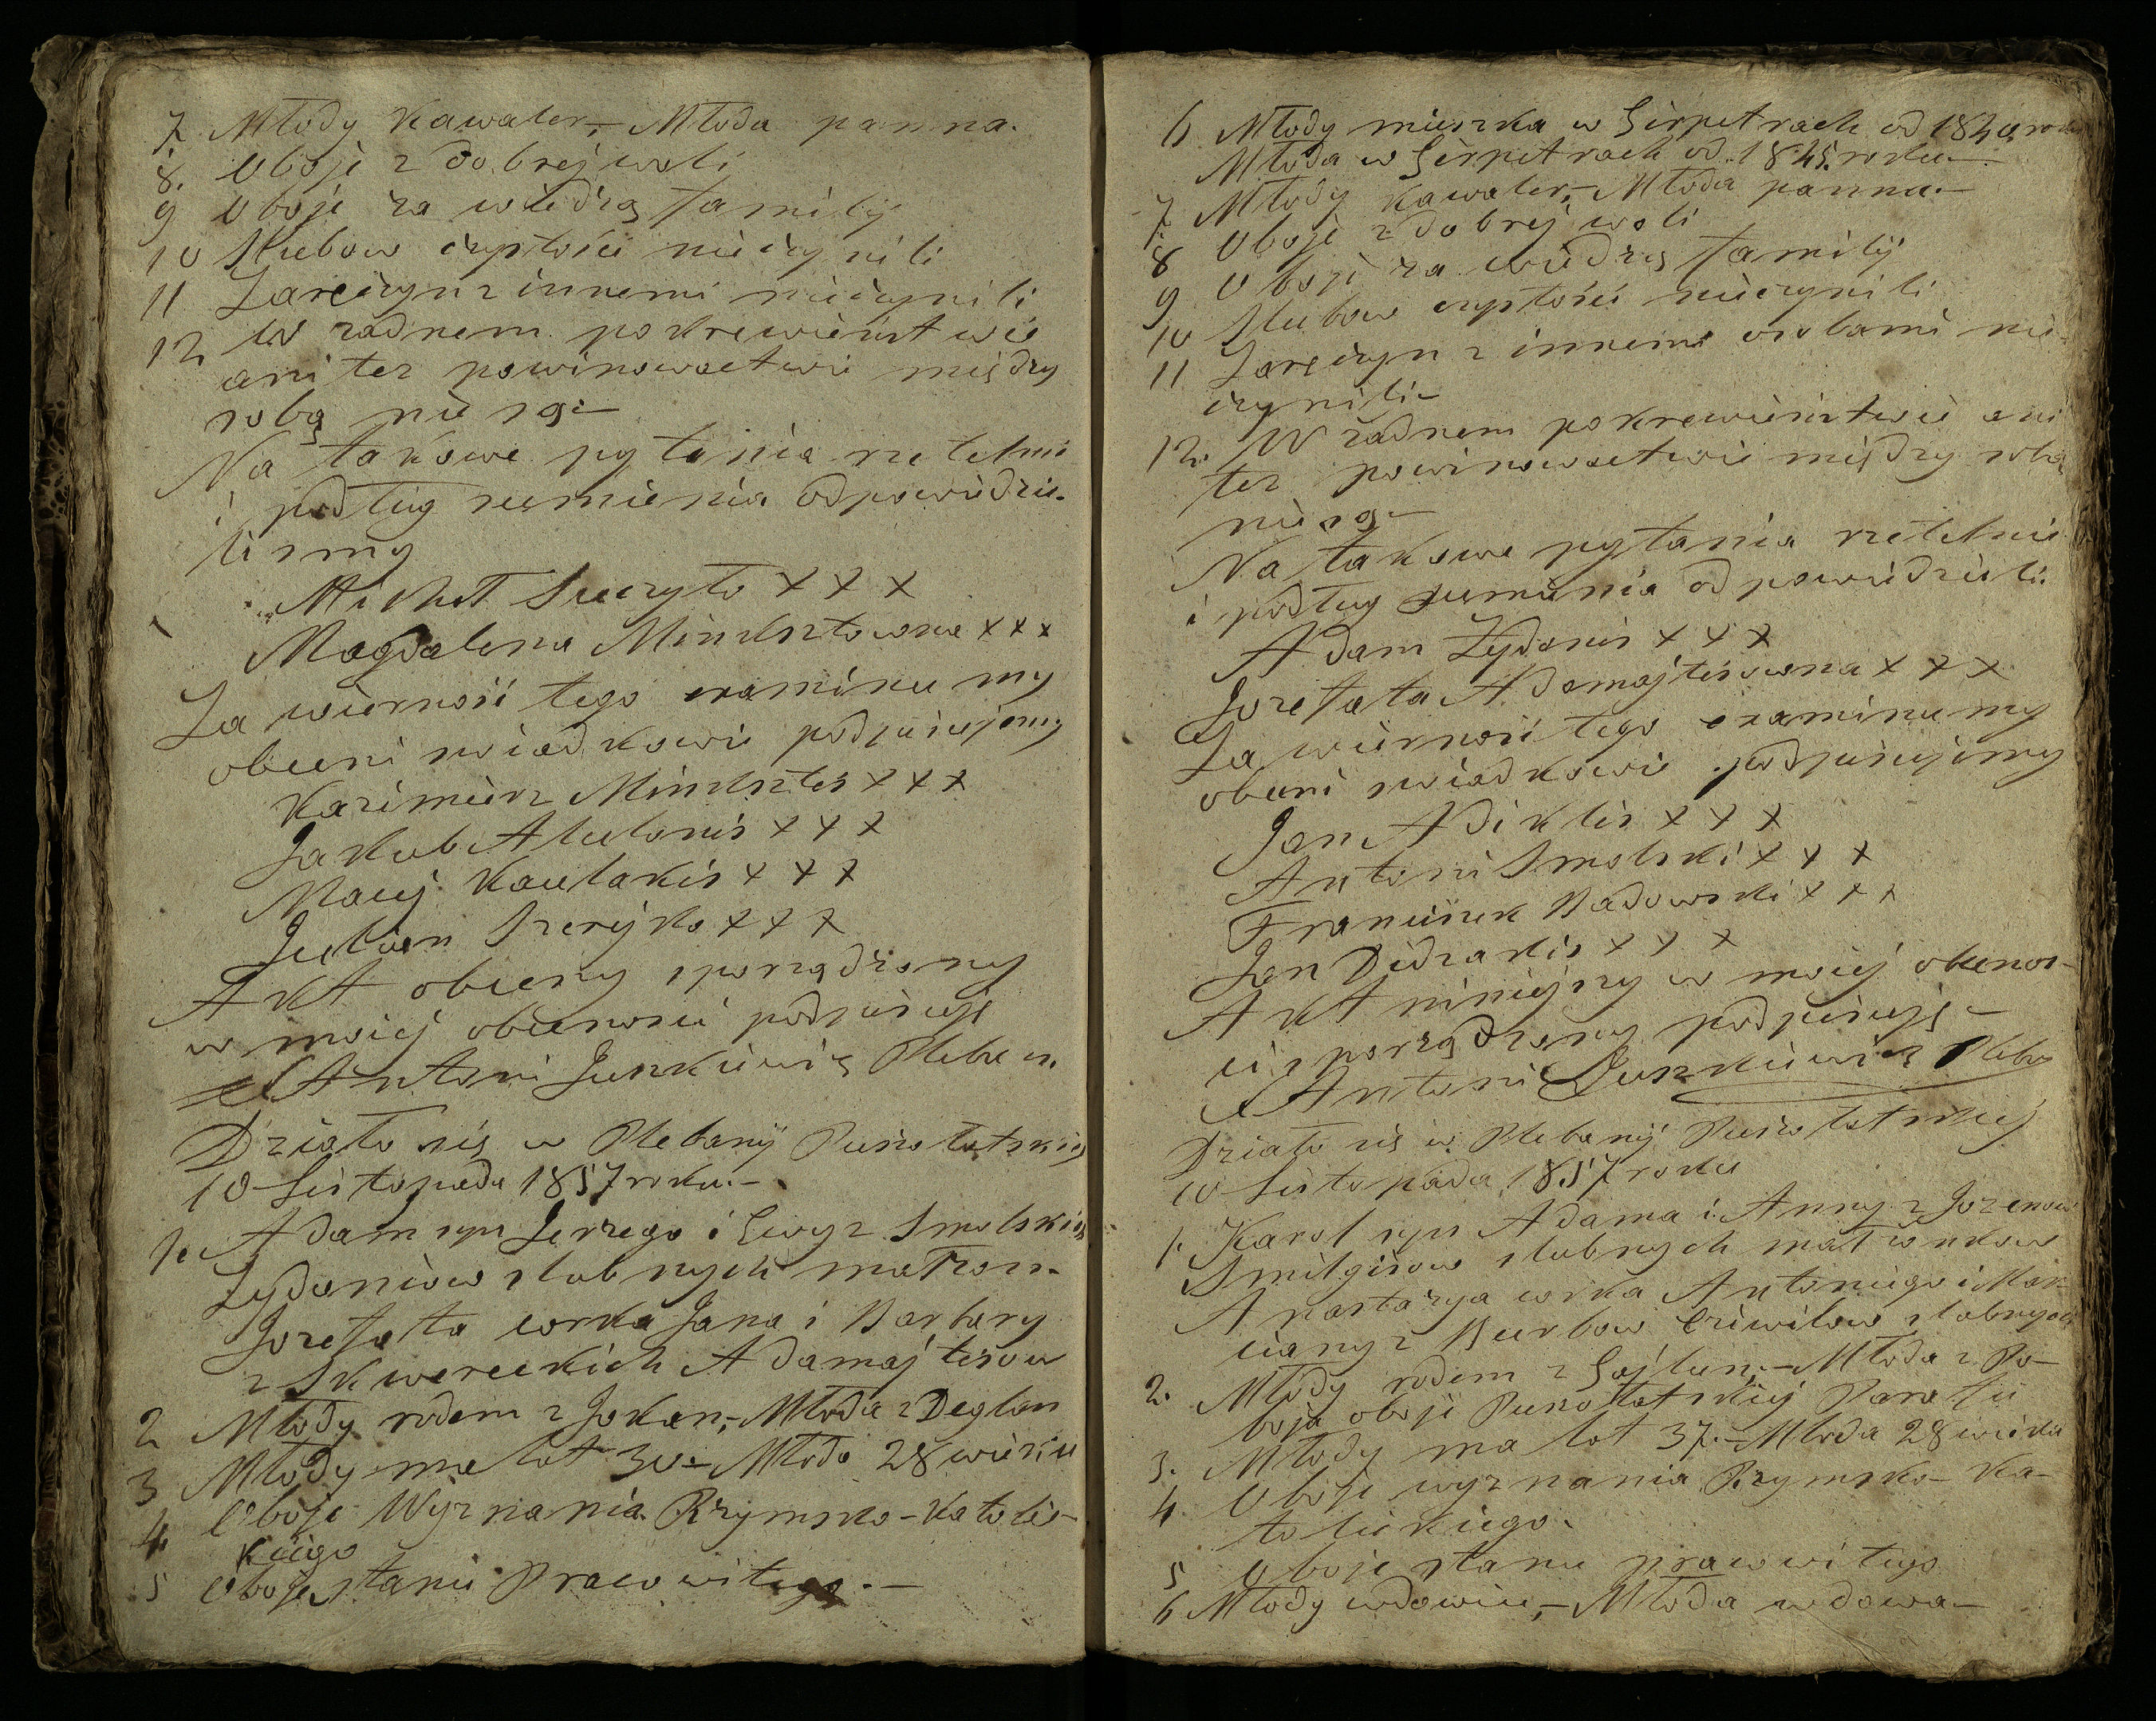 7 Młody Kawaler,- Młoda panna.
8. Oboje z dobrej woli
9 Oboje za wiedzą familij
10 Slubow czystości nieczynili
11 Zaręczyn z innemi nieczynili
12 W zadnem pokrewieństwie
ani tez powinowactwie między
sobą nie są.-
Na takowe pytania rzetelnie
i podług sumienia odpowiedzie-
lismy
Michał Suczyło x x x
Magdalena Minksztowna x x x
Za wierność tego examinu my
obecni swiadkowie podpisujemy
Kazimierz Minksztes x x x
Jakub Alulonis x x x
Maciej Kaulakis x x x
Julian Szerejko x x x
Akt obecny sporządzony
w moiej obecnosci podpisuję
Antoni Juszkiewicz Pleban.
Działo się w Plebanij Puszołatskiej
10 Listopada 1857 roku.-
1. Adam syn Jerzego i Ewy z Smolskich
Zydoniow slubnych małżon.
Jozefata corka Jana i Barbary
z Skwereckich Adamajtisow
2 Młody rodem z Jokan,- Młoda z Deglan
3 Młody ma lat 30- Młoda 28 wieku
4. Oboje Wyznania Rzymsko-Katolic-
kiego
5 Oboje stanu Pracowitego.-
6 Młody mieszka w Girpetrach od 1840 roku
Młoda w Girpetrach od 1845. roku.-
7 Młody Kawaler,- Młoda panna.-
8 Oboje z dobrej woli
9 Oboje za wiedzą familij
10 Slubow czystości nieczynili
11 Zaręczyn z innemi osobami nie-
czynili-
12. W zadnem pokrewieństwie ani
tez powinowactwie między sobą
nie są-
Na takowe pytania rzetelnie
i podług sumienia odpowiedzieli.
Adam Zydonis x x x
Jozefata Adamajtisowna x x x
Za wierność tego examinu my
obecni swiadkowie podpisujemy
Jan Adiklis x x x
Antoni Smolski x x x
Franciszek Badowski x x x
Jan Didzakis x x x
Akt niniejszy w moiej obecnos-
ci sporządzony podpisuję-
Antoni Juszkiewicz Pleban
Działo się w Plebanij Puszołatskiej
10 Listopada 1857 roku
1. Karol syn Adama i Anny z Jozenow
Smilgisow slubnych małżonkow
Anastazya corka Antoniego i Mar-
cianny z Burbow Cziwilow slubnych
2. Młody rodem z Gajlun,- Młoda z Po-
boja oboje Puszołatskiej Parafii
3. Młody ma lat 37.- Młoda 28 wieku
4. Oboje wyznania Rzymsko-Ka-
tolickiego.
5 Oboje stanu pracowitego
6 Młody wdowiec,- Młoda wdowa-